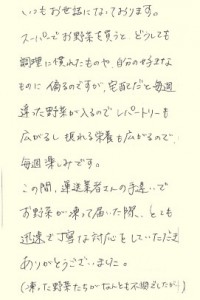 いつもお世話になっております。
スーパーでお野菜を買うと、どうしても
調理に慣れたものや、自分の好きな
ものに偏るのですが、宅配だと毎週
違った野菜が入るのでレパートリーも
広がるし摂れる栄養も広がるので、
毎週楽しみです。
この間、運送業者さんの手違いで
お野菜が凍って届いた際、とても
迅速で丁寧な対応をしていただき
ありがとうございました。
(凍った野菜たちがなんとも不憫でしたが!)